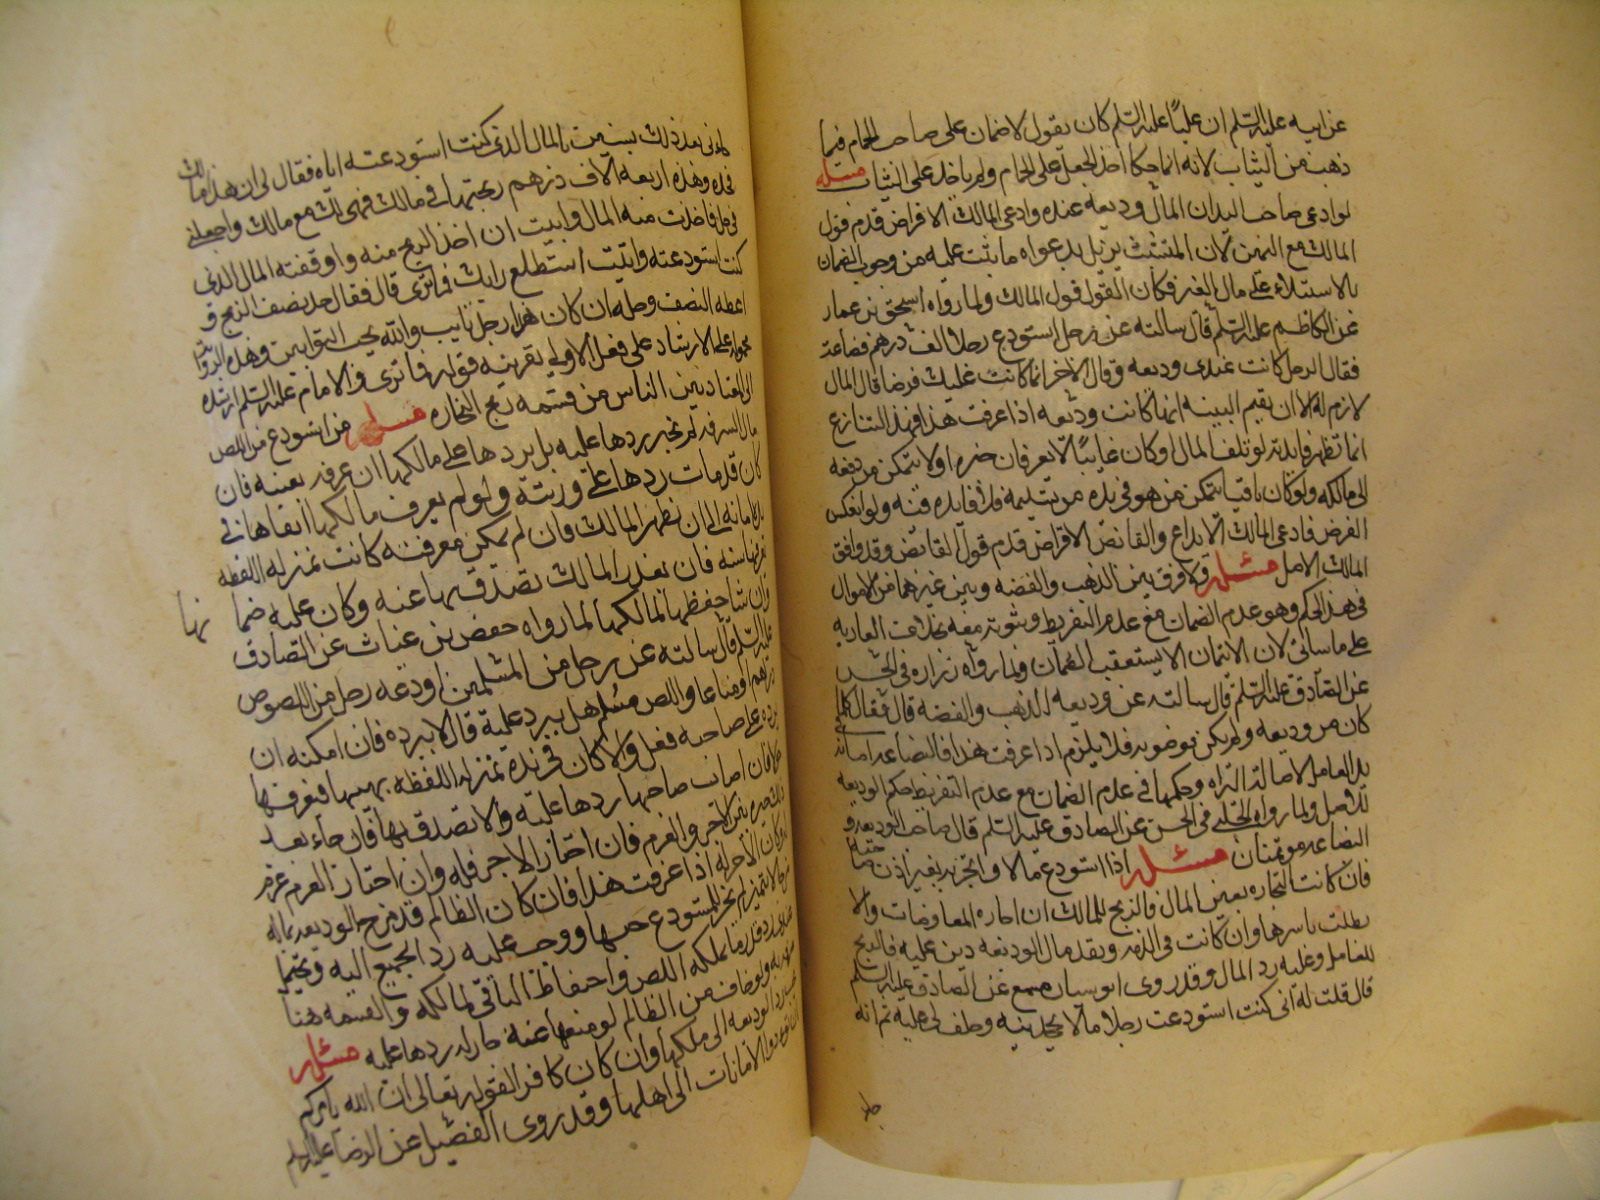 عن ابيه عليه السلم ان عليا عليه السلم كان يقول لا ضمان على صاحب الحمام فيما
ذهب من الثياب لانه انما اخذ الجعل على الحمام ولم ياخذ على الثياب مسئله
لو ادعى صاحب اليد ان المال وديعه عنده وادعى المالك الاقراض قدم قول
المالك مع اليمين لان المتشبث يزيل بدعواه ما ثبت عليه من وجوب الضمان
بالاستيلاء على مال الغير فكان القول قول المالك ولما رواه اسحق بن عمار
عن الكاظم عليه السلم قال سالته عن رجل استودع رجلا الف درهم فضاعت
فقال الرجل كانت عندى وديعه وقال الاخر انما كانت عليك قرضا قال المال
لازم له الا ان يقيم البينه انها كانت وديعه اذا عرفت هذا فهذا التنازع
انما تظهر فايدته لو تلف المال او كان غايبا لا يعرفان خبره او لا يتمكن من دفعه
الى مالكه ولو كان باقيا يتمكن من هو فى يده من تسليمه فلا فايده فيه ولو انعكس
الفرض فادعى المالك الايداع والقابض الاقراض قدم قول القابض وقد وافق
المالك الاصل مسئله ولا فرق بين الذهب والفضه وبين غيرهما من الاموال
فى هذا الحكم وهو عدم الضمان مع عدم التفريط وثبوته معه بخلاف العاريه
على ما ساتى لان الايتمان لا يستعقب الضمان ولما رواه زراره فى الحسن
عن الصادق عليه السلم قال سالته عن وديعه الذهب والفضه قال فقال كلما
كان من وديعه ولم يكن مضمونه فلا يلزم اذا عرفت هذا فالبضاعه امانه
بيد العامل لاصالة البراه وحكمها فى عدم الضمان مع عدم التفريط حكم الوديعه
للاصل ولما رواه الحلبى فى الحسن عن الصادق عليه السلم قال صاحب الوديعه و
البضاعه موتمنان مسئله اذا استودع مالا واتجر به بغير اذن صاحبه
فان كانت التجاره بعين المال فالربح للمالك ان اجاز المعاوضات والا
بطلت باسرها وان كانت فى الذمه ونقد مال الوديعه دين عليه فالربح
للعامل وعليه رد المال وقد روى ابو سيار مسمع عن الصادق عليه السلم
قال قلت له انى كنت استودعت رجلا مالا فجحدنيه وحلف لى عليه ثم انه
جاء
جاءنى بعد ذلك بسنين بالمال الذى كنت استودعته اياه فقال لى ان هذا مالك
فخذه وهذه اربعه الاف درهم ربحتها فى مالك فهى لك مع مالك واجعلنى
فى حل فاخذت منه المال وابيت ان اخذ الربح منه واوقفته المال الذى
كنت استودعته واتيت استطلع رايك فما ترى قال فقال خذ نصف الربح و
اعطه النصف وحله ان كان هذا رجل تايب والله يحب التوابين وهذه الروايه
محموله على الارشاد على فعل الاولى بقرينه قوله فما ترى والامام عليه السلم ارشده
الى المعتاد بين الناس من قسمه ربح التجاره مسئله من استودع من اللص
مال السرقه لم يجز ردها عليه بل يردها على مالكها ان عرفه بعينه فان
كان قد مات ردها على ورثته ولو لم يعرف مالكها ابقاها فى
يده امانه الى ان يظهر المالك فان لم يمكن معرفته كانت بمنزله اللقطه
يعرفها سنه فان تعذر المالك تصدق بها عنه وكان عليه ضمانها
وان شا حفظها لمالكها لما رواه حفص بن غياث عن الصادق
عليه السلم قال سالته عن رجل من المسلمين اودعه رجل من اللصوص
دراهم او متاعا واللص مسلم هل يرد عليه قال لا يرده فان امكنه ان
يرده على صاحبه فعل والا كان فى يده بمنزله اللقطه يصيبها فيعرفها
حولا فان اصاب صاحبها ردها عليه والا تصدق بها فان جاء بعد
ذلك خيره بين الاجر والغرم فان اختار الاجر فله وان اختار الغرم غرم
له وكان الاجر له اذا عرفت هذا فان كان الظالم قد مزج الوديعه بماله
مزجا لا يتميز لم يجز للمستودع حبسها ووجب عليه رد الجميع اليه ويحتمل
عندى رد قدر ما يملكه اللص واحتفاظ الباقى لمالكه والقسمه هنا
ولو خاف من الظالم لو منعها عنه جاز له ردها عليه مسئله
يجب رد الوديعه الى مالكها وان كان كافرا لقوله تعالى ان الله يامركم
ان تودوا الامانات الى اهلها وقد روى الفضيل عن الرضا عليه السلم